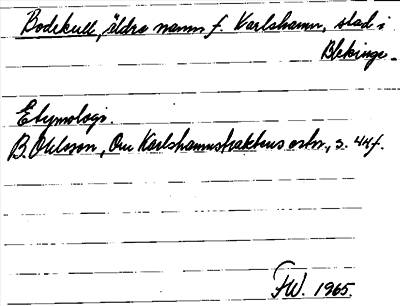 Bodekull, äldre namn f. Karlshamn, stad i
Blekinge.
Etymologi.
B. Ohlsson, Om Karlshamnstraktens ortn., s. 44f.
FW. 1965.